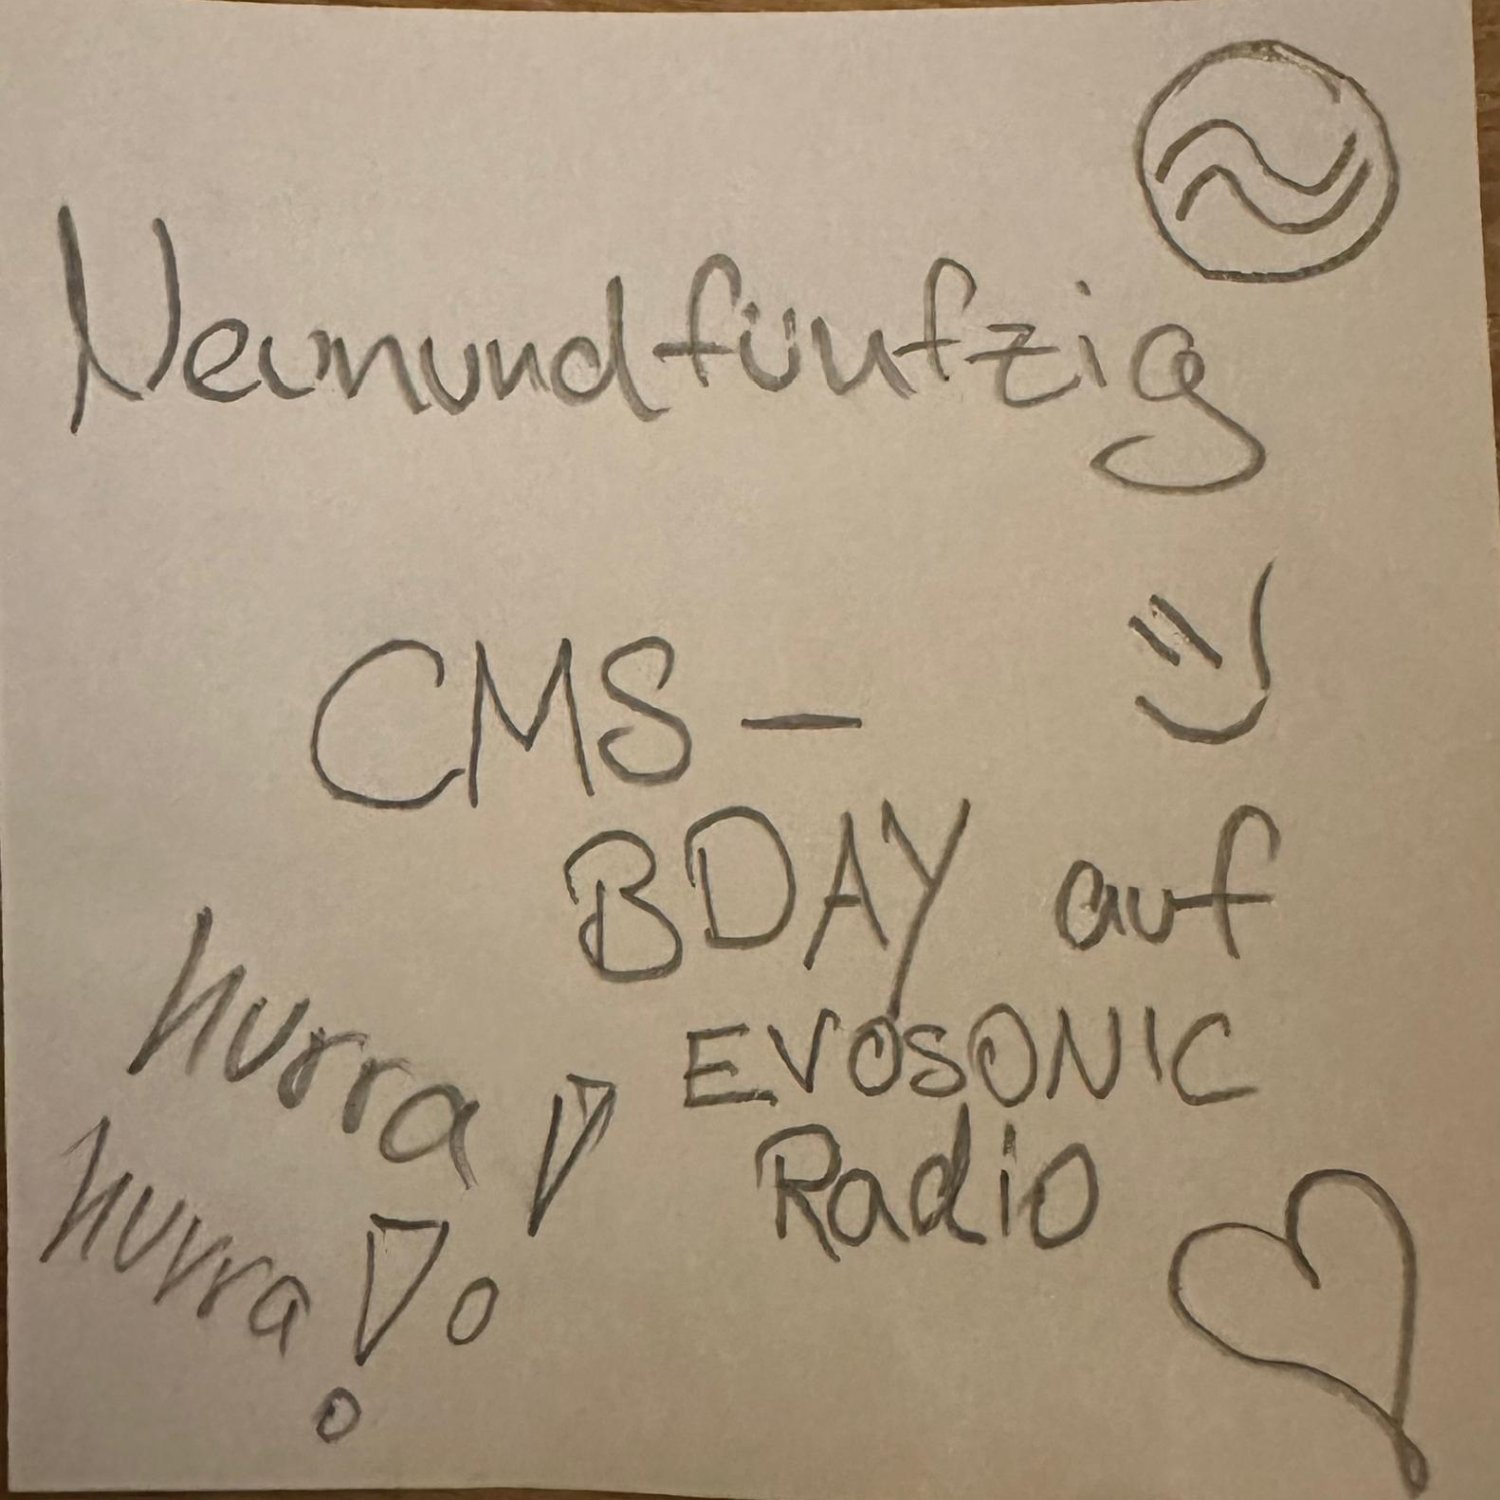 Neunundfünfzig
CMS –
BDAY auf
EVOSONIC
Radio
hurra!
hurra!